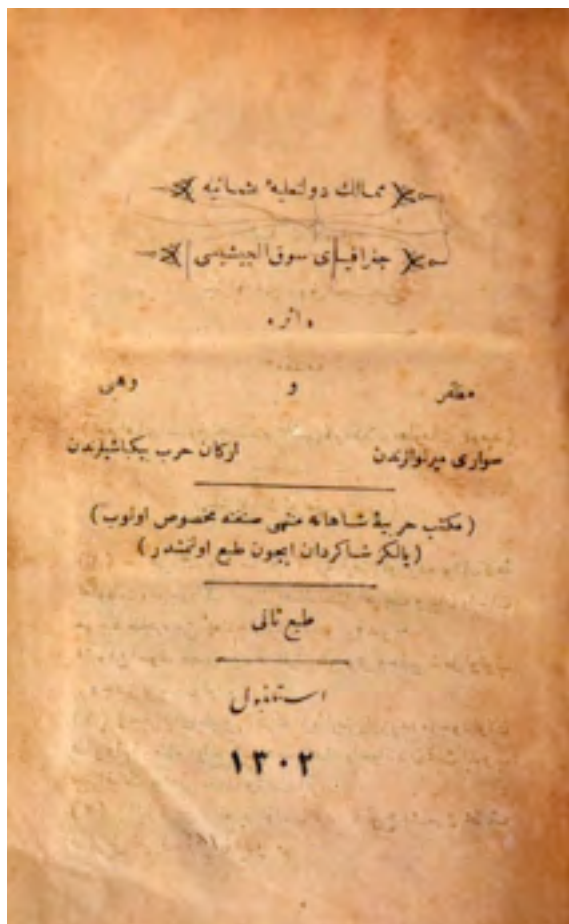 ممالك دولتعليهٔ عثمانيه
جغرافياى سوق الجيشيسى
اثر
مظفر و وهبى
سوارى ميرلوالرندن اركان حرب بيكباشيلرندن
(مكتب حربيهٔ شاهانه منتهى صنفنه مخصوص اولوب)
(يالكز شاكردان ايچون طبع اولنمشدر)
طبع ثانى
استانبول
١٣٠٢